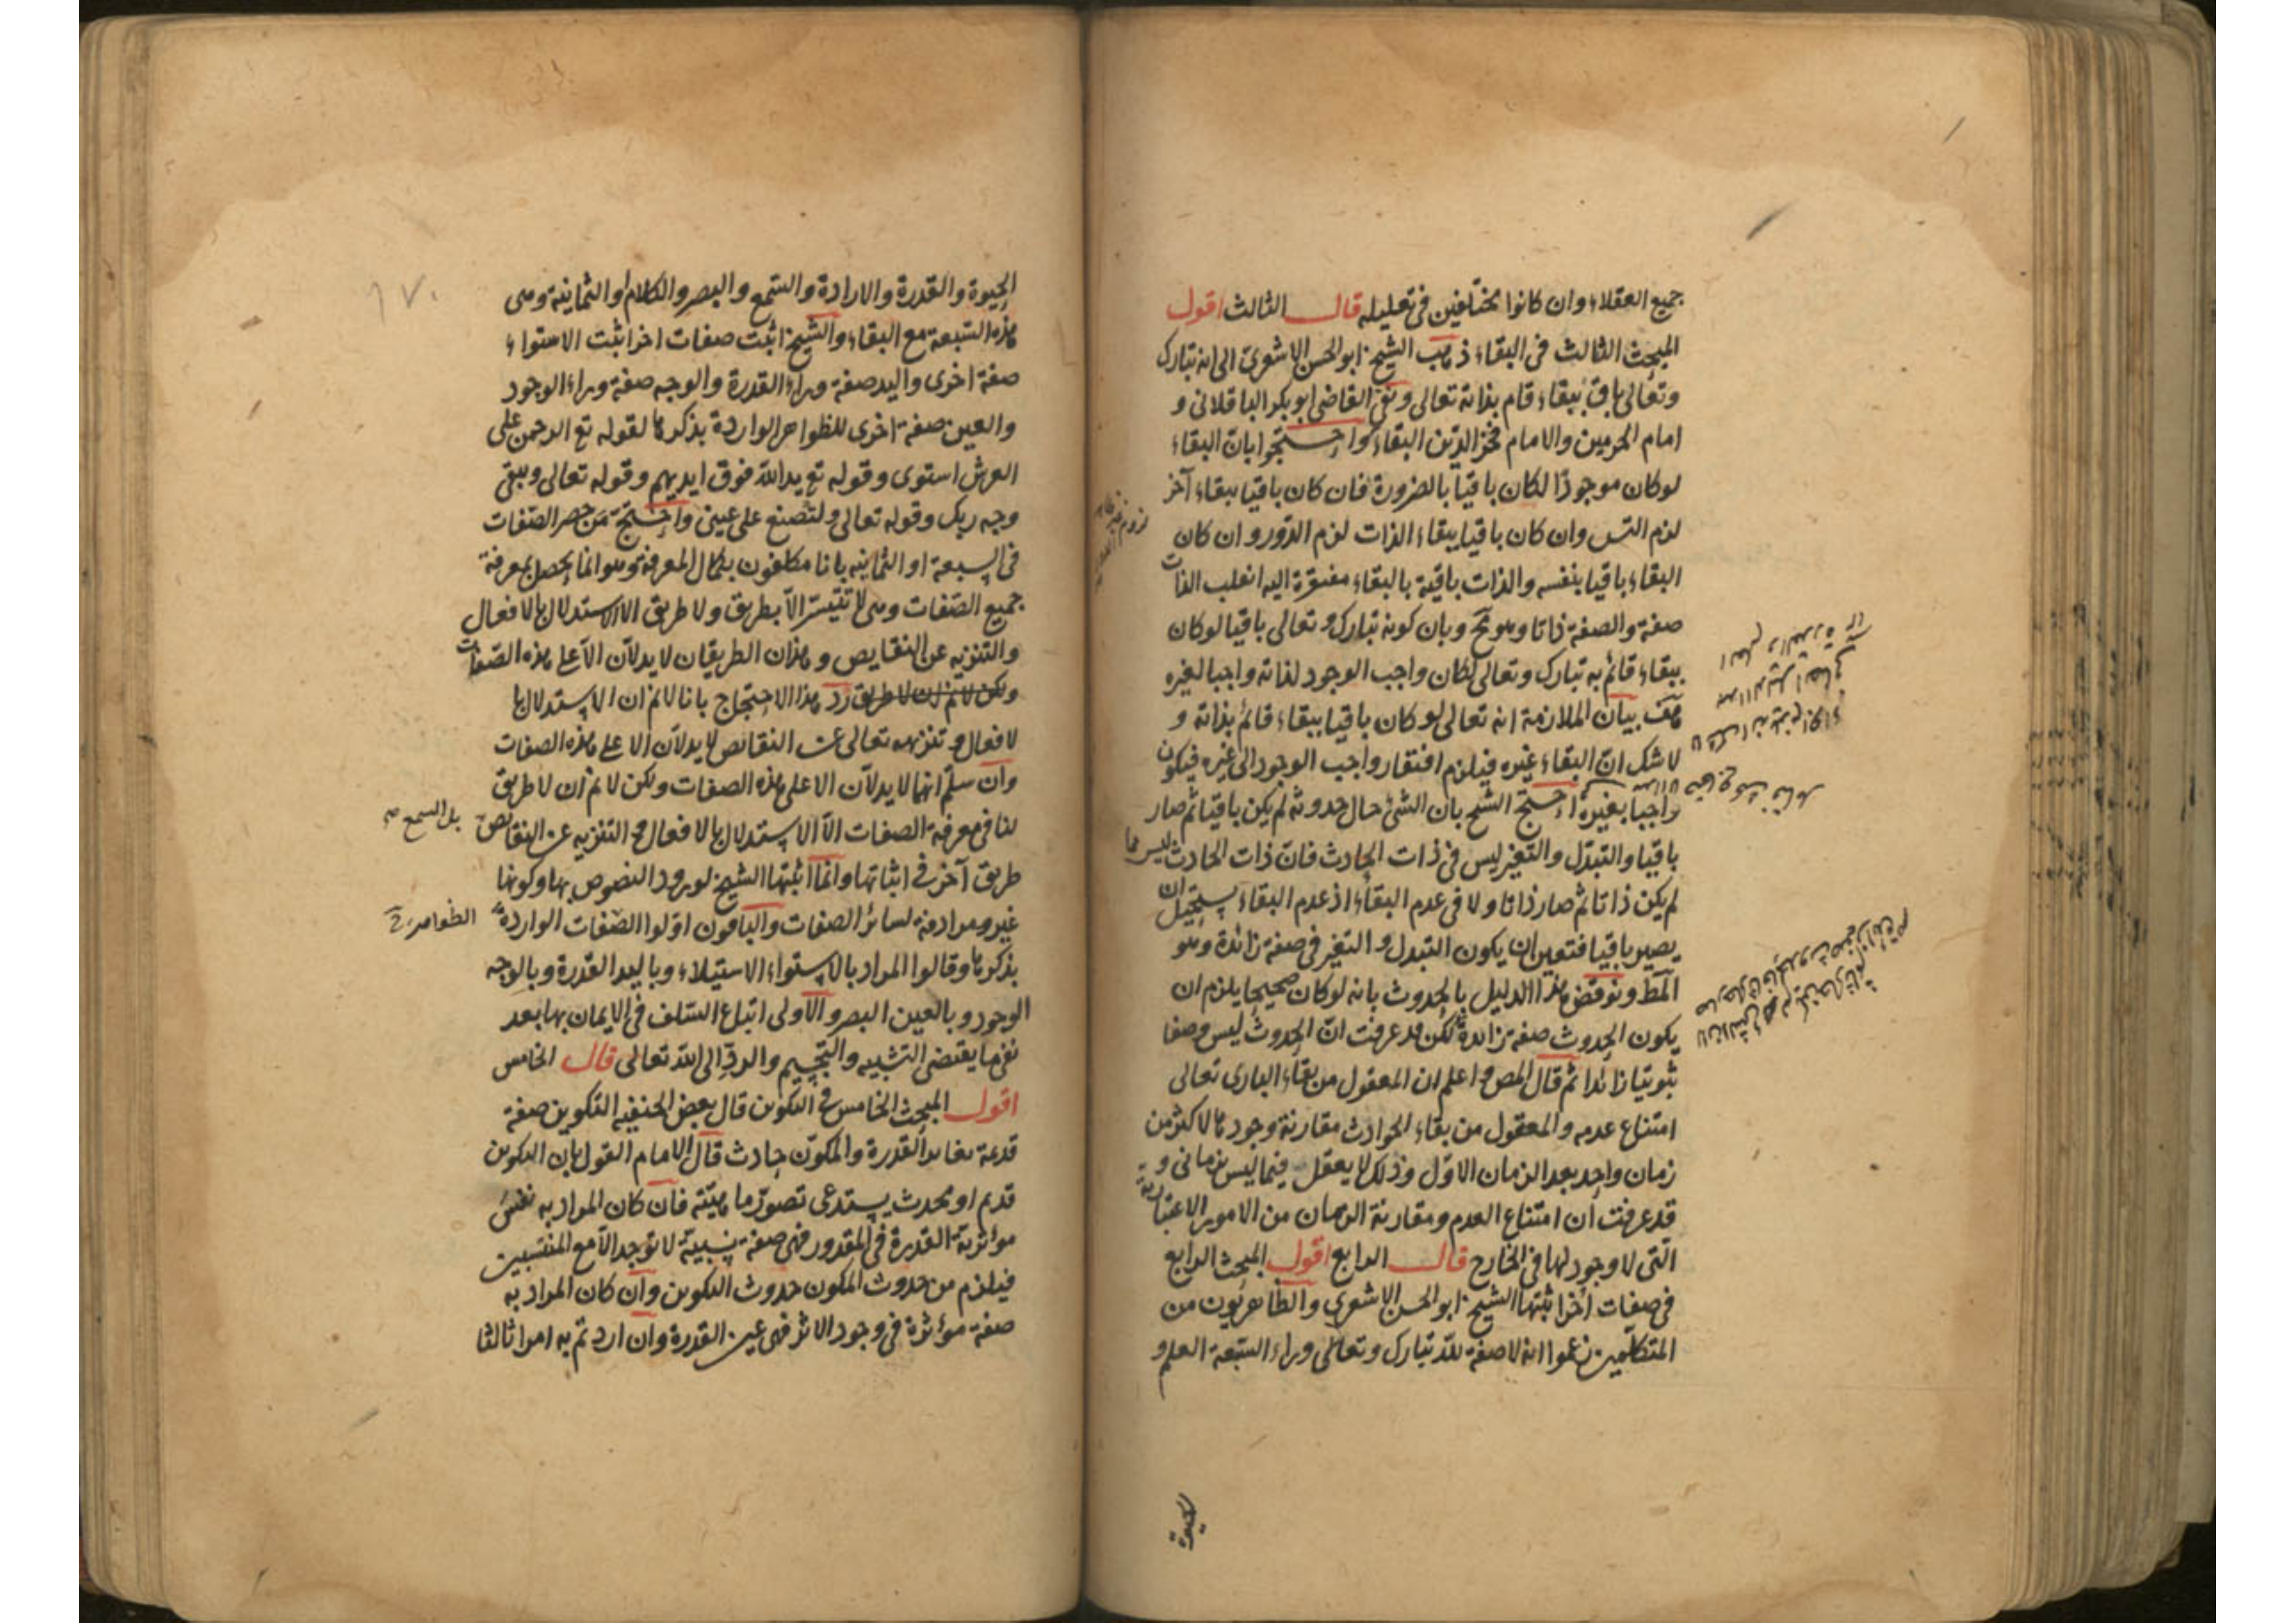 جميع العقلاء وان كانوا مختلفين في تعليله قال الثالث اقول
المبحث الثالث في البقاء ذهب الشيخ ابو الحسن الاشعري الى انه تبارك
وتعالى باق ببقاء قام بذاته تعالى ونفى القاضي ابو بكر الباقلاني و
امام الحرمين والامام فخر الدين البقاء واحتجوا بان البقاء
لو كان موجودا لكان باقيا بالضرورة فان كان باقيا ببقاء آخر
لزم التس وان كان باقيا ببقاء الذات لزم الدور وان كان
البقاء باقيا بنفسه والذات باقية بالبقاء مفتقرة اليه انقلب الذات
صفة والصفة ذاتا وهو مح وبان كونه تبارك وتعالى باقيا لو كان
ببقاء قائم به تبارك وتعالى لكان واجب الوجود لذاته واجبا لغيره
هف بيان الملازمة انه تعالى لو كان باقيا ببقاء قائم بذاته و
لا شك ان البقاء غيره فيلزم افتقار واجب الوجود الى غيره فيكون
واجبا بغيره احتج الشيخ بان الشئ حال حدوثه لم يكن باقيا ثم صار
باقيا والتبدل والتغير ليس في ذات الحادث فان ذات الحادث ليس مما
لم يكن ذاتا ثم صار ذاتا ولا في عدم البقاء اذ عدم البقاء يستحيل ان
يصير باقيا فتعين ان يكون التبدل والتغير في صفة زائدة وهو
المط ونوقض هذا الدليل بالحدوث بانه لو كان صحيحا يلزم ان
يكون الحدوث صفة زائدة لكن قد عرفت ان الحدوث ليس وصفا
ثبوتيا زائدا ثم قال المص واعلم ان المعقول من بقاء الباري تعالى
امتناع عدمه والمعقول من بقاء الحوادث مقارنة وجودها لاكثر من
زمان واحد بعد الزمان الاول وذلك لا يعقل فيما ليس بزماني و
قد عرفت ان امتناع العدم ومقارنة الزمان من الامور الاعتبارية
التي لا وجود لها في الخارج قال الرابع اقول المبحث الرابع
في صفات اخر اثبتها الشيخ ابو الحسن الاشعري والظاهريون من
المتكلمين زعموا انه لا صفة لله تبارك وتعالى وراء السبعة العلم و
الحيوة والقدرة والارادة والسمع والبصر والكلام او الثمانية وهي
هذه السبعة مع البقاء والشيخ اثبت صفات اخر اثبت الاستواء
صفة اخرى واليد صفة وراء القدرة والوجه صفة وراء الوجود
والعين صفة اخرى للظواهر الواردة بذكرها لقوله تع الرحمن على
العرش استوى وقوله تع يد الله فوق ايديهم وقوله تعالى ويبقى
وجه ربك وقوله تعالى ولتصنع على عيني واحتج من حصر الصفات
في السبعة او الثمانية بانا مكلفون بكمال المعرفة وهو انما يحصل بمعرفة
جميع الصفات وهي لا تتيسر الا بطريق ولا طريق الا الاستدلال بالافعال
والتنزيه عن النقايص وهذان الطريقان لا يدلان الا على هذه الصفات
ولكن لا نم ان لا طريق رد هذا الاحتجاج بانا لا نم ان الاستدلال با
لافعال وتنزيهه تعالى عن النقائص لا يدلان الا على هذه الصفات
وان سلم انهما لا يدلان الا على هذه الصفات ولكن لا نم ان لا طريق
لنا في معرفة الصفات الا الاستدلال بالافعال والتنزيه عن النقائص
بل السمع
طريق آخر في اثباتها وانما اثبتها الشيخ لورود النصوص بها وكونها
غير مرادفة لسائر الصفات والباقون اولوا الصفات الواردة
الظواهر
بذكرها وقالوا المراد بالاستواء الاستيلاء وباليد القدرة وبالوجه
الوجود وبالعين البصر والاولى اتباع السلف في الايمان بها بعد
نفي ما يقتضي التشبيه والتجسيم والرد الى الله تعالى قال الخامس
اقول المبحث الخامس في التكوين قال بعض الحنفية التكوين صفة
قديمة تغاير القدرة والمكون حادث قال الامام القول بان التكوين
قديم او محدث يستدعي تصور ماهيته فان كان المراد به نفس
مؤثرية القدرة في المقدور فهي صفة نسبية لا توجد الا مع المنتسبين
فيلزم من حدوث المكون حدوث التكوين وان كان المراد به
صفة مؤثرة في وجود الاثر فهي عين القدرة وان اردتم به امرا ثالثا